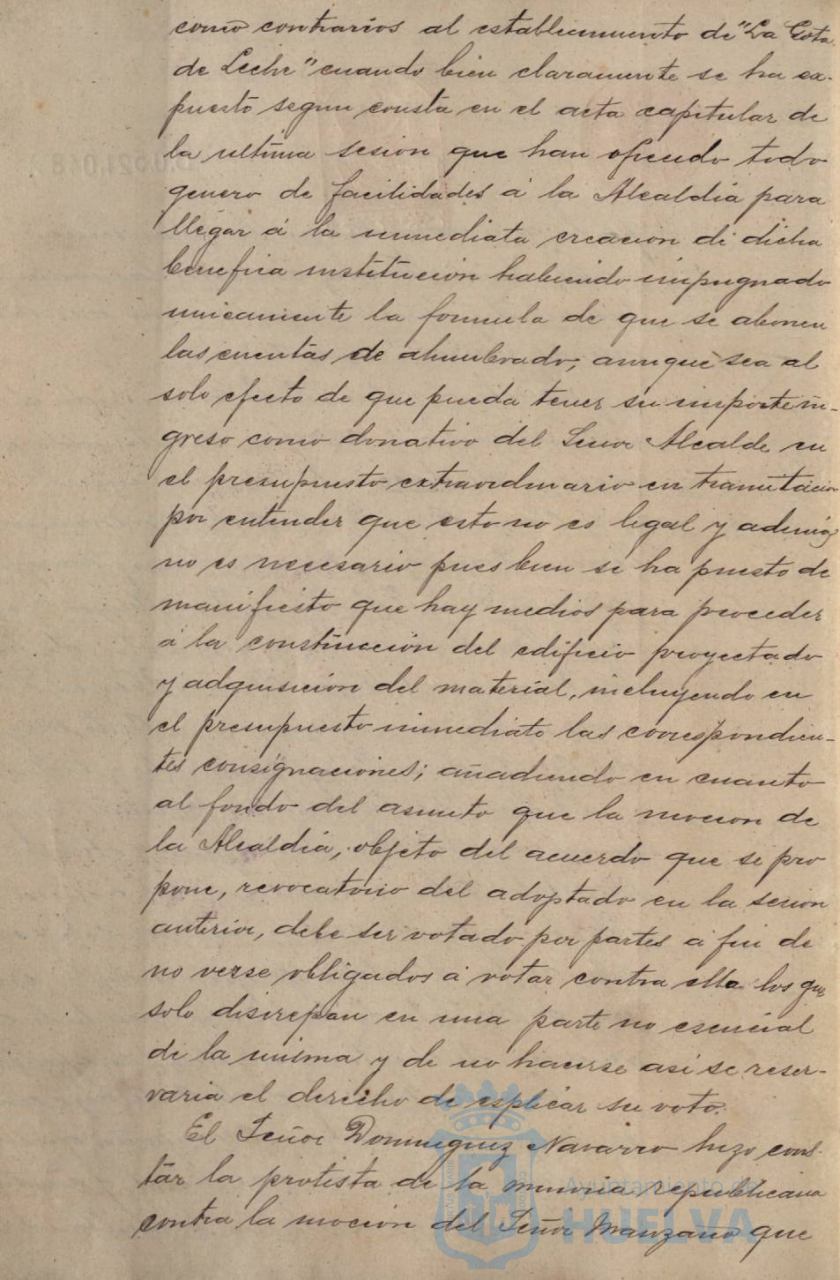 como contrarios al establecimiento de "La Gota
de Leche" cuando bien claramente se ha ex-
puesto segun consta en el acta capitular de
la ultima sesion que han ofrecido todo
genero de facilidades á la Alcaldia para
llegar á la inmediata creacion de dicha
benefica institución habiendo impugnado
unicamente la formula de que se abonen
las cuentas de alumbrado, aunque sea al
solo efecto de que pueda tener su importe in-
greso como donativo del Señor Alcalde en
el presupuesto extraordinario en tramitacion
por entender que esto no es legal y ademas
no es necesario pues bien se ha puesto de
manifiesto que hay medios para proceder
á la construcción del edificio proyectado
y adquisición del material, incluyendo en
el presupuesto inmediato las correspondien-
tes consignaciones; añadiendo en cuanto
al fondo del asunto que la mocion de
la Alcaldia, objeto del acuerdo que se pro
pone, revocatorio del adoptado en la sesion
anterior, debe ser votado por partes a fin de
no verse obligados a votar contra ella los que
solo discrepan en una parte no esencial
de la misma y de no hacerse asi se reser-
varia el derecho de esplicar su voto.
El Señor Dominguez Navarro hizo cons-
tar la protesta de la minoria republicana
contra la moción del Señor Manzano que
Ayuntamiento de
HUELVA